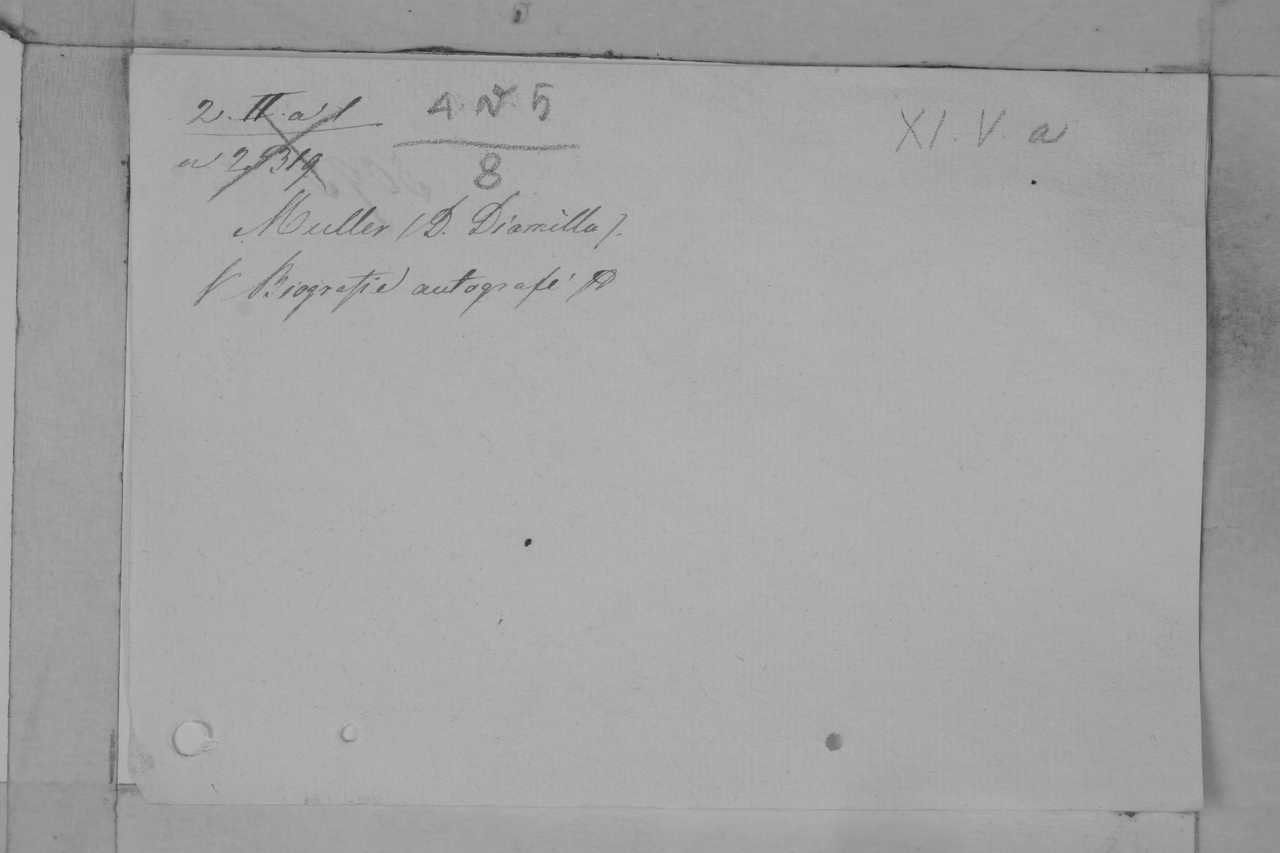 2. II. a 1
4. N. 5
8
XI. V. a
a 2, 319
Muller (D. Diamilla).
V Biografie autografe